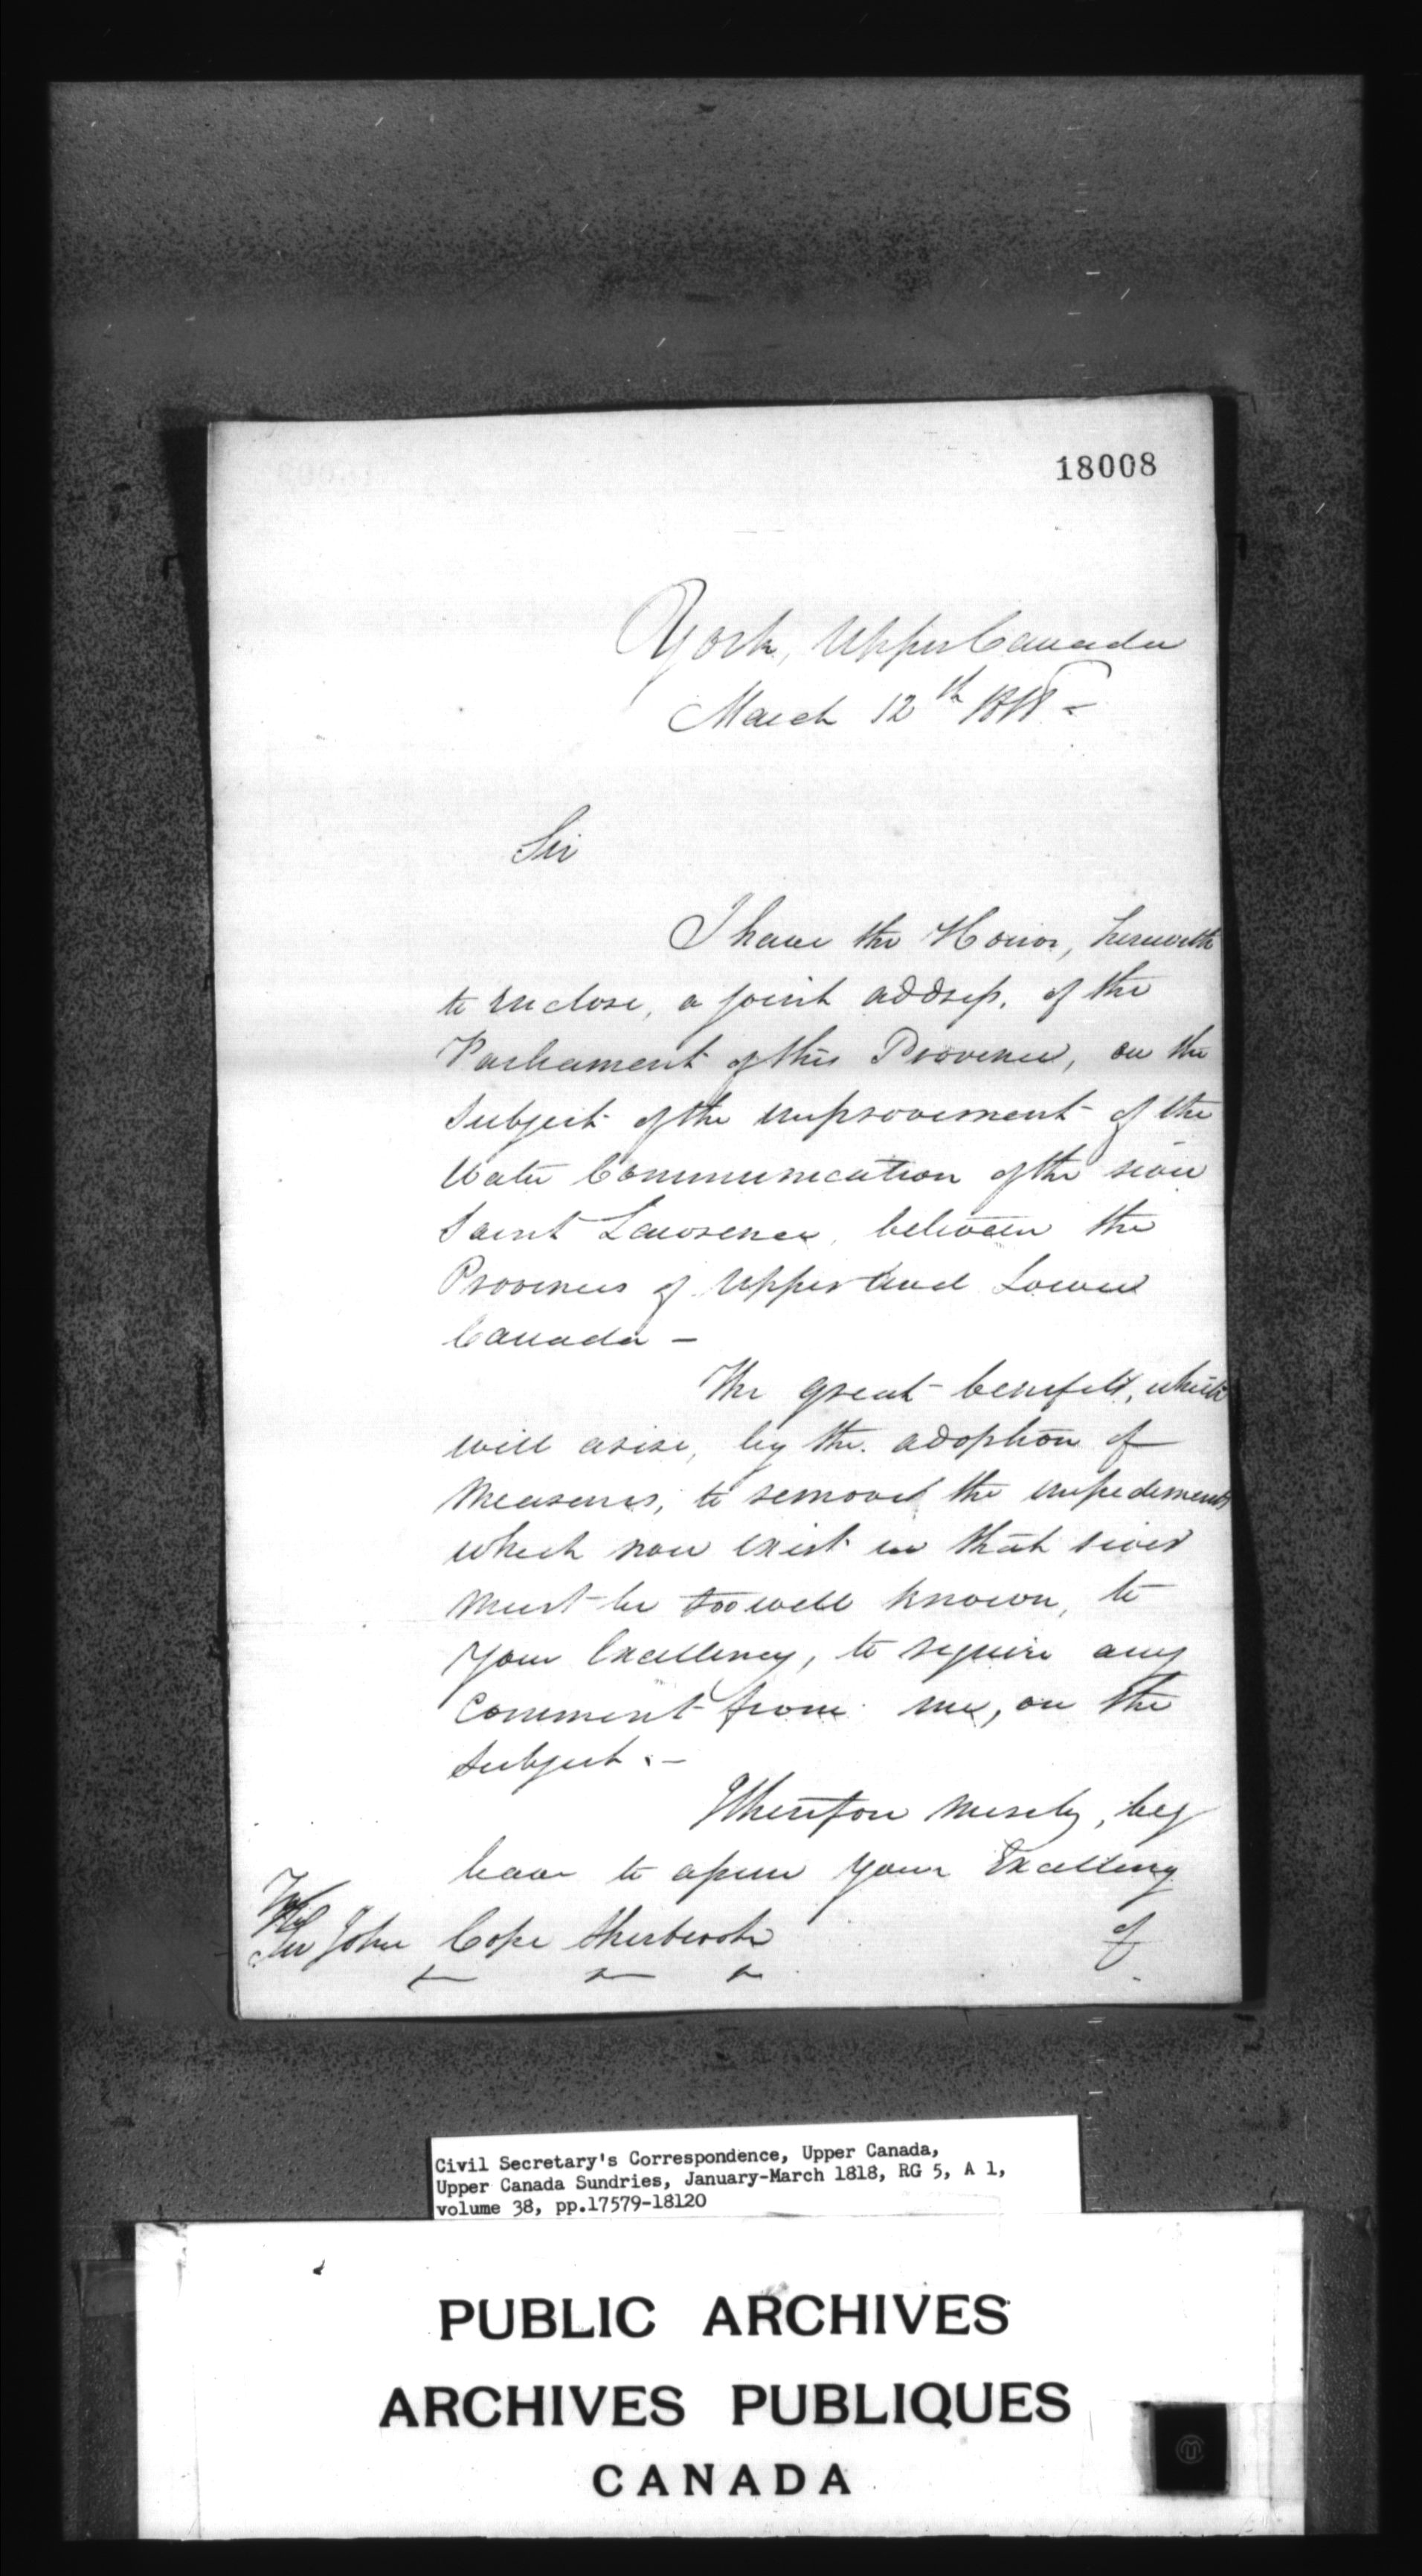 18008
York, Upper Canada
March 12th 1818 -
Sir
I have the Honor, herewith
to enclose, a joint address, of the
Parliament of this Province, on the
subject of the improvement of the
Water Communication of the river
Saint Lawrence, between the
Provinces of Upper and Lower
Canada -
The great benefits, which
will arise, by the adoption of
Measures, to remove the impediments
which now exist in that river
must be too well known, to
Your Excellency, to require any
comment from me, on the
subject. -
I therefore merely, beg
leave to assure your Excellency
of
Sir John Cope Sherbrooke
Civil Secretary's Correspondence, Upper Canada,
Upper Canada Sundries, January-March 1818, RG 5, A 1,
volume 38, pp.17579-18120
PUBLIC ARCHIVES
ARCHIVES PUBLIQUES
CANADA